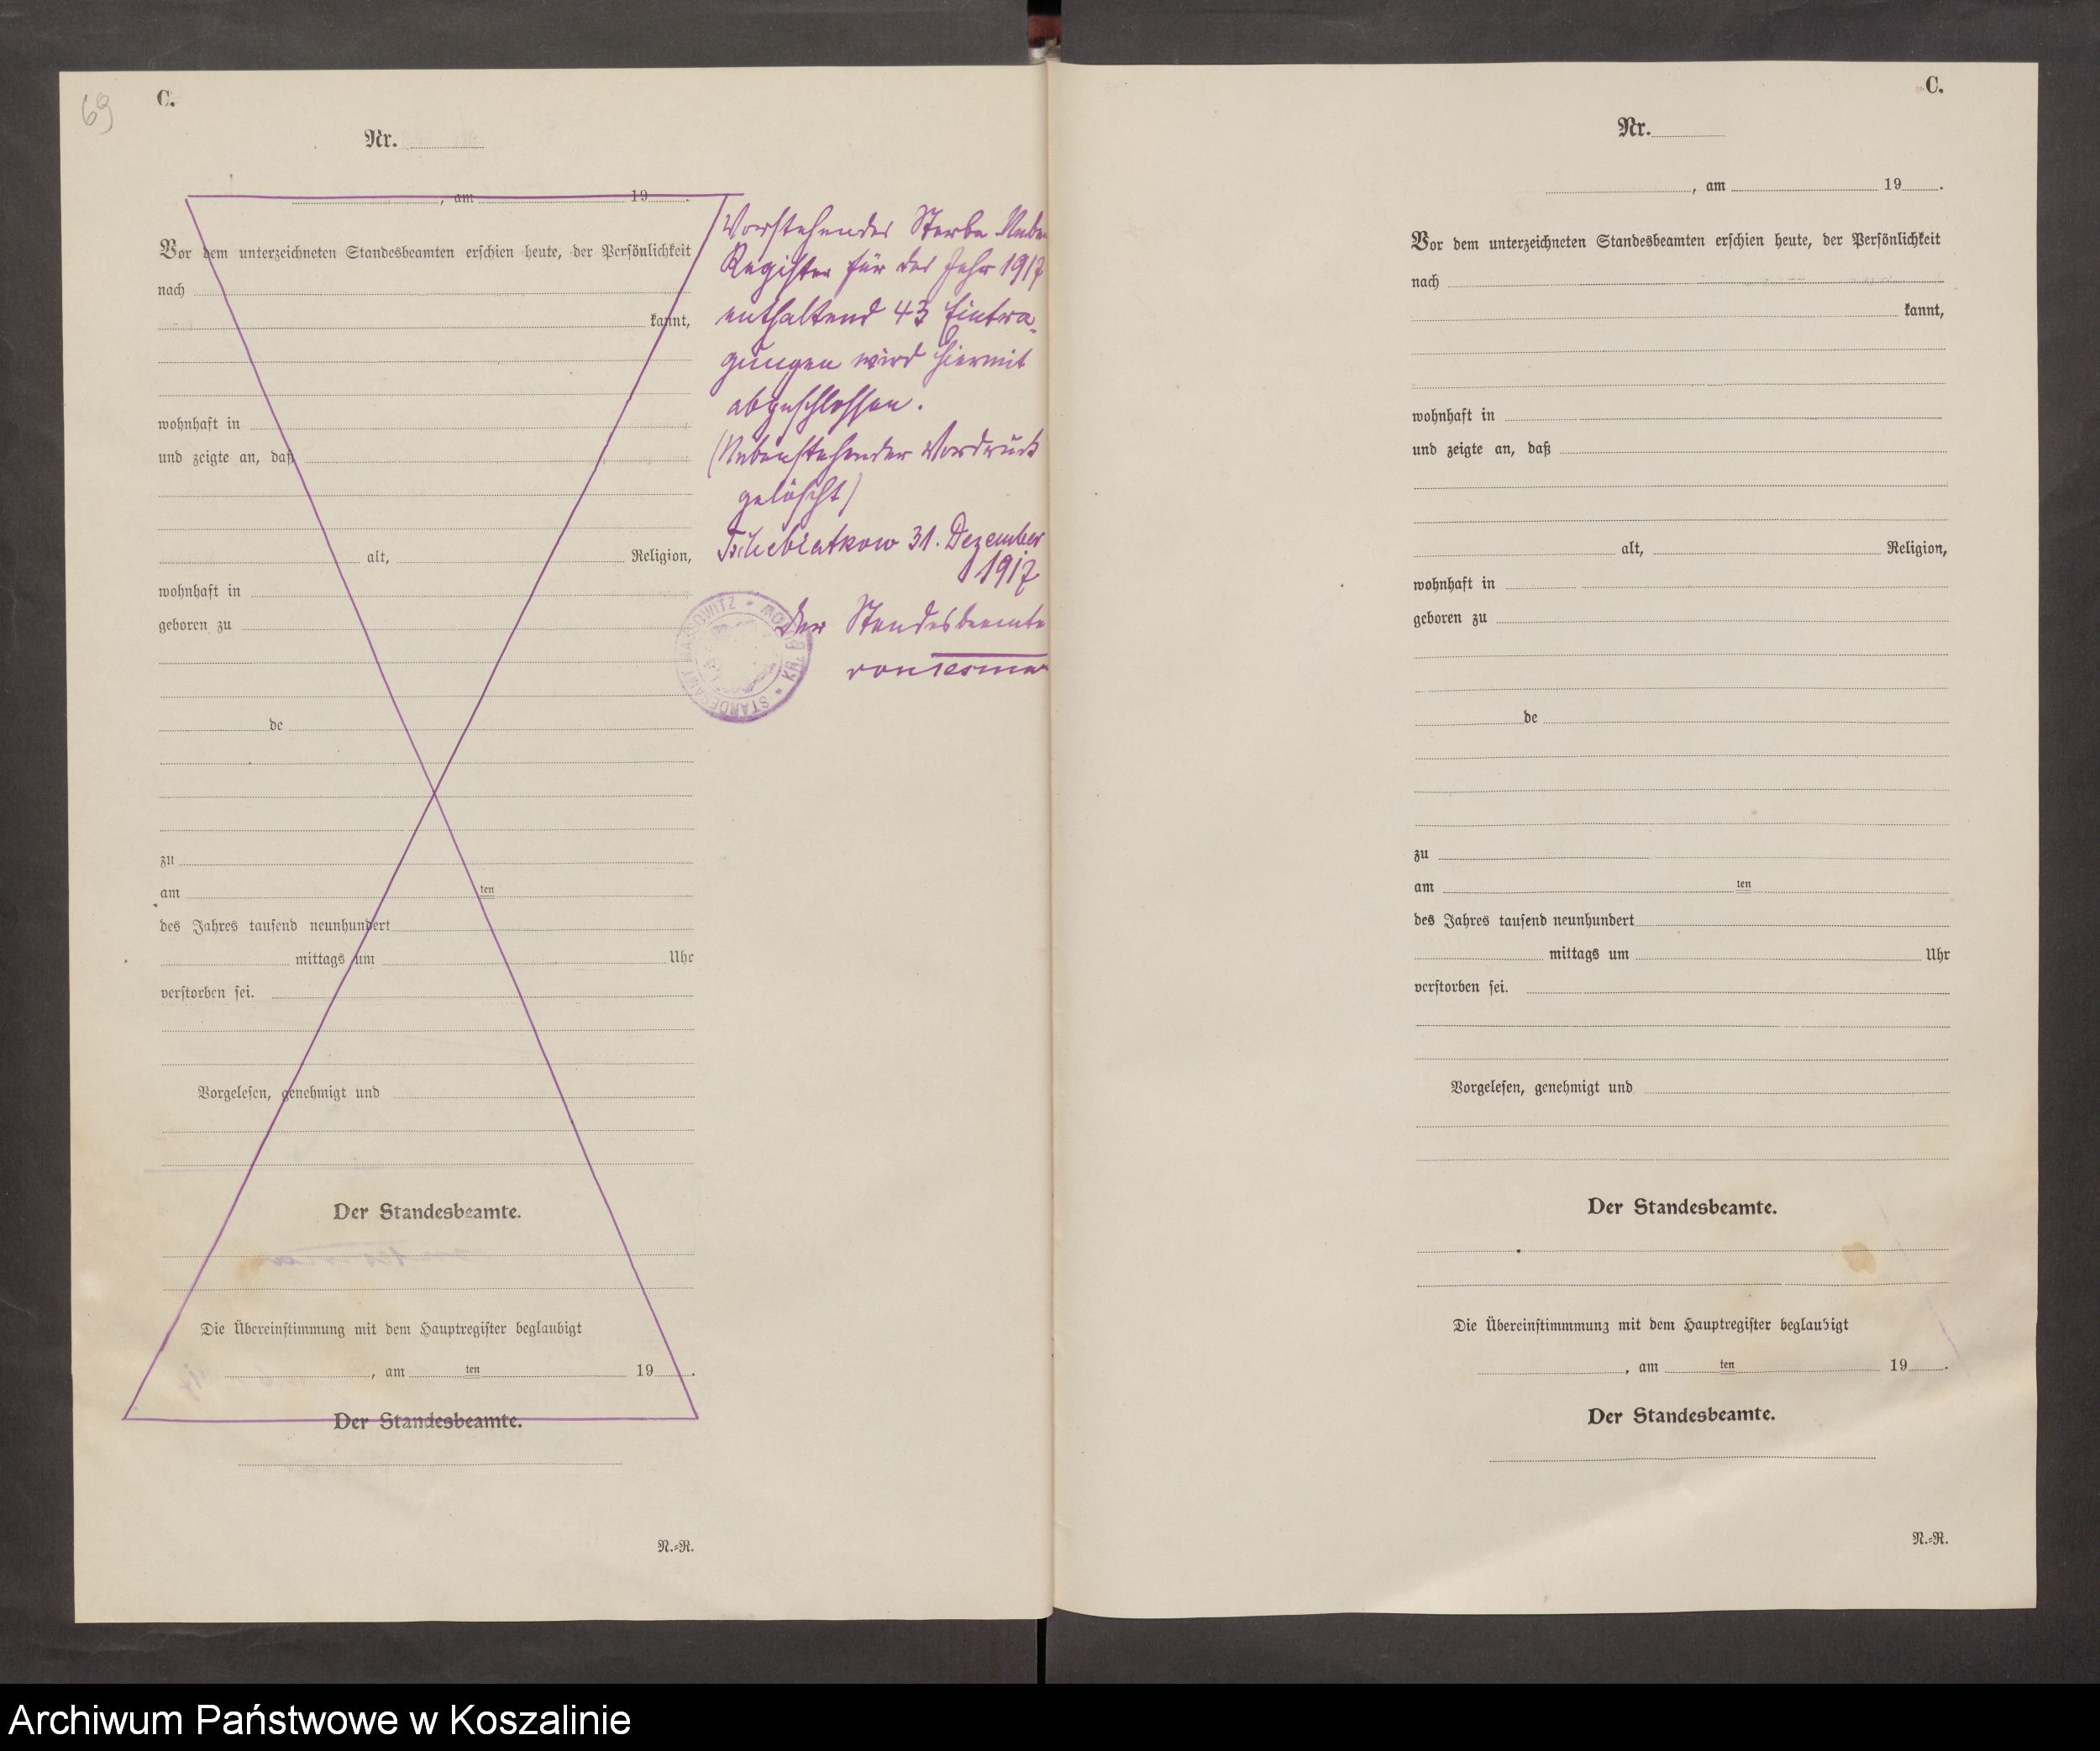 69
C.
Nr.
, am 19 .
Vor dem unterzeichneten Standesbeamten erschien heute, der Persönlichkeit
nach
kannt,
wohnhaft in
und zeigte an, daß
alt, Religion,
wohnhaft in
geboren zu
de
zu
am ten
des Jahres tausend neunhundert
mittags um Uhr
verstorben sei.
Vorgelesen, genehmigt und
Der Standesbeamte.
Die Übereinstimmung mit dem Hauptregister beglaubigt
, am ten 19 .
Der Standesbeamte.
N.=R.
Vorstehendes Sterbe Neben
Register für das Jahr 1917
enthaltend 43 Eintra-
gungen wird hiermit
abgeschlossen.
(Nebenstehender Vordruck
gelöscht)
Tschebiatkow 31. Dezember
1917
Der Standesbeamte
STANDESAMT
C.
Nr.
, am 19 .
Vor dem unterzeichneten Standesbeamten erschien heute, der Persönlichkeit
nach
kannt,
wohnhaft in
und zeigte an, daß
alt, Religion,
wohnhaft in
geboren zu
de
zu
am ten
des Jahres tausend neunhundert
mittags um Uhr
verstorben sei.
Vorgelesen, genehmigt und
Der Standesbeamte.
Die Übereinstimmung mit dem Hauptregister beglaubigt
, am ten 19 .
Der Standesbeamte.
N.=R.
Archiwum Państwowe w Koszalinie